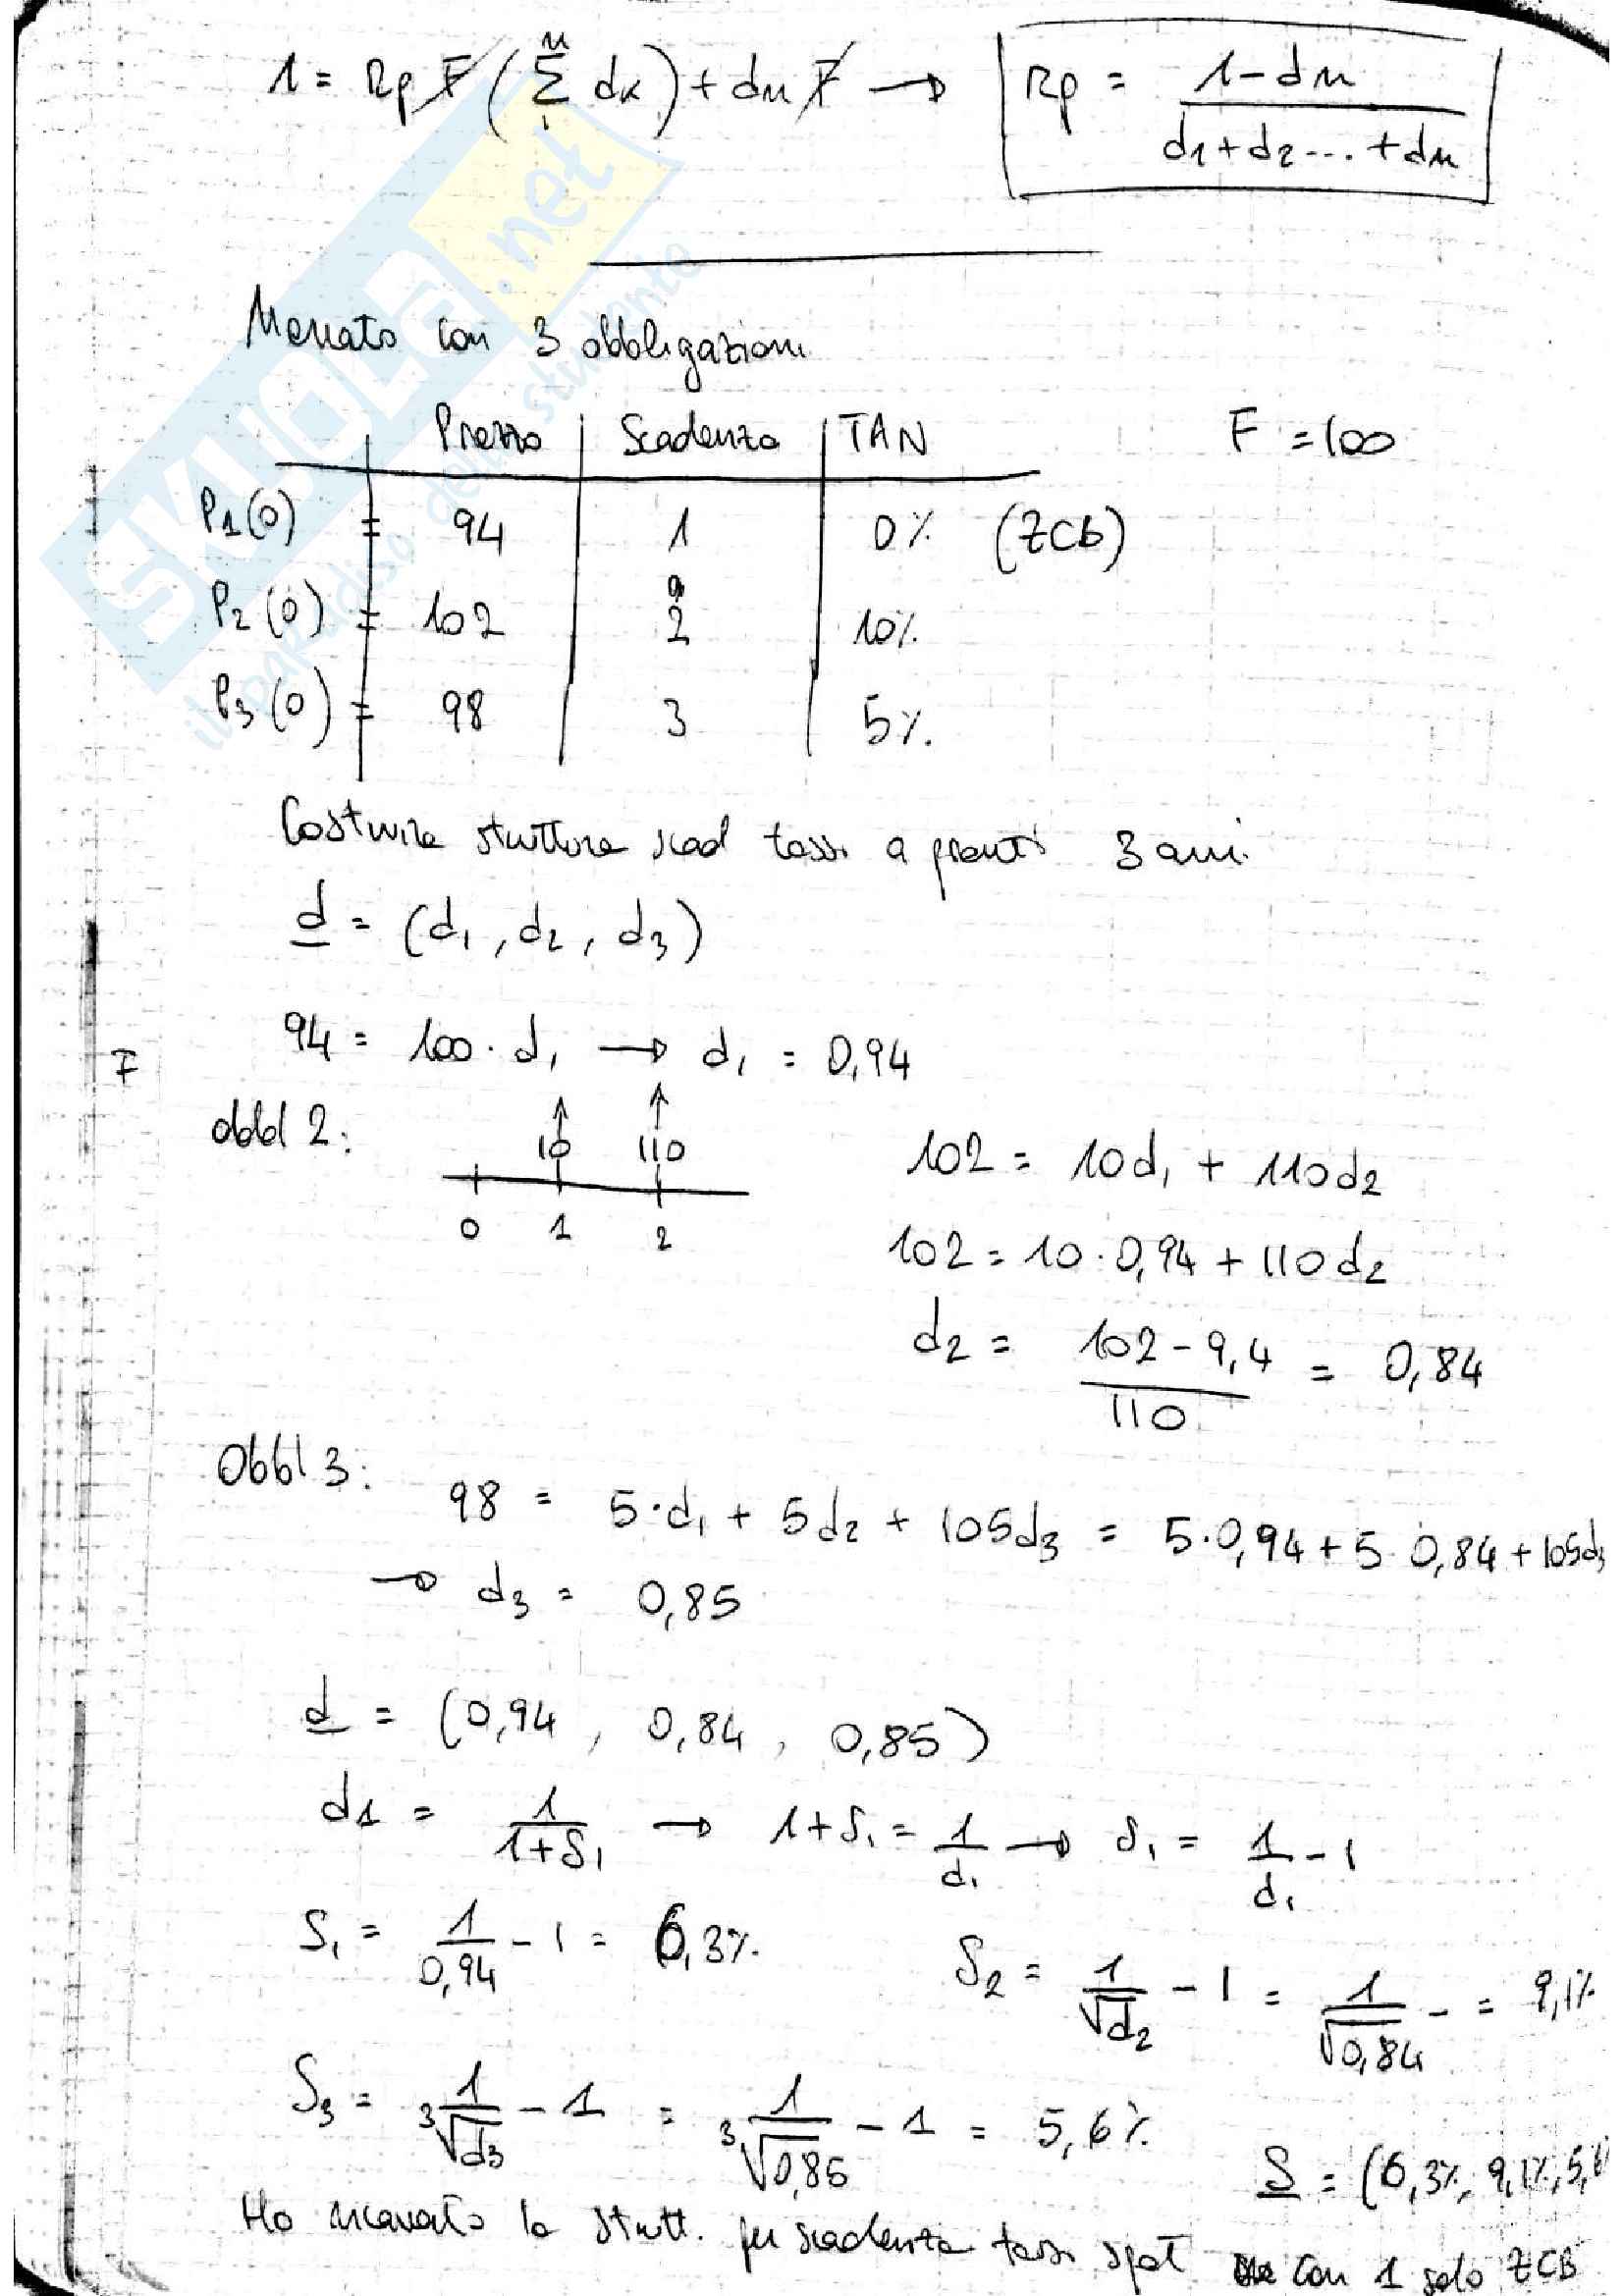 1 = Rp F ( Σ₁ⁿ dk ) + dn F → Rp = (1 - dn) / (d1 + d2 ... + dn)
Mercato con 3 obbligazioni
Prezzo | Scadenza | TAN F = 100
P1(0) = 94 | 1 | 0% (ZCB)
P2(0) = 102 | 2 | 10%
P3(0) = 98 | 3 | 5%.
Costruire struttura scad tassi a pronti 3 anni
d = (d1, d2, d3)
94 = 100 · d1 → d1 = 0,94
F
obbl 2: 10 110
0 1 2
102 = 10d1 + 110d2
102 = 10 · 0,94 + 110d2
d2 = (102 - 9,4) / 110 = 0,84
Obbl 3:
98 = 5·d1 + 5d2 + 105d3 = 5·0,94 + 5·0,84 + 105d3
→ d3 = 0,85
d = (0,94, 0,84, 0,85)
d1 = 1 / (1+S1) → 1+S1 = 1/d1 → S1 = 1/d1 - 1
S1 = 1/0,94 - 1 = 6,3%. S2 = 1/√d2 - 1 = 1/√0,84 - = 9,1%
S3 = 1/³√d3 - 1 = 1/³√0,85 - 1 = 5,6%
S = (6,3%, 9,1%, 5,6
Ho ricavato la strutt. per scadenza tassi spot con 1 solo ZCB
SKUOLA.net
il paradiso dello studente